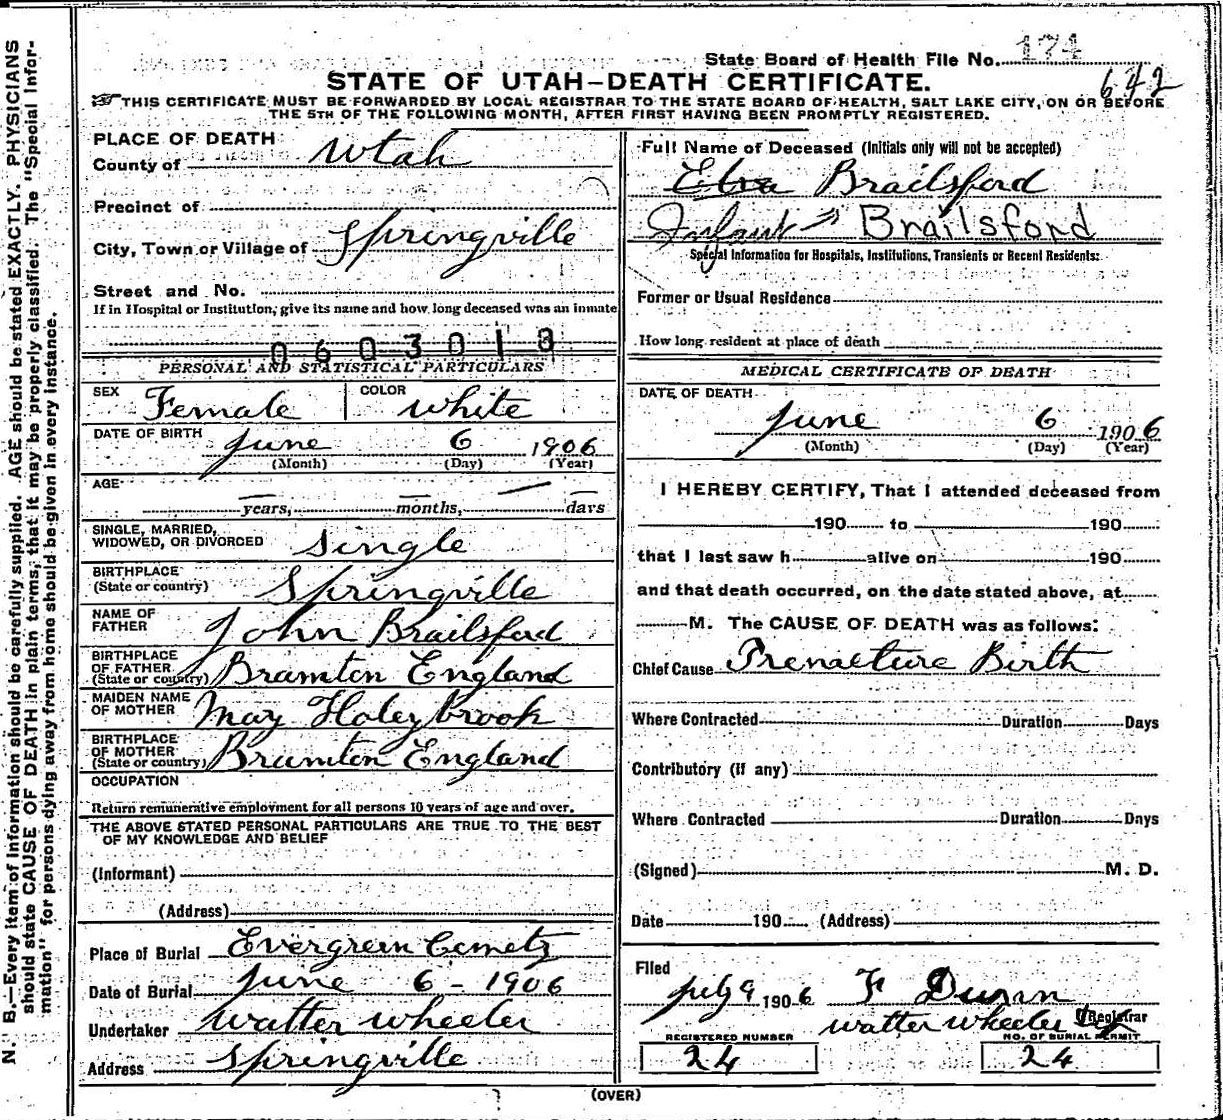 State Board of Health File No. 174
642
STATE OF UTAH-DEATH CERTIFICATE.
THIS CERTIFICATE MUST BE FORWARDED BY LOCAL REGISTRAR TO THE STATE BOARD OF HEALTH, SALT LAKE CITY, ON OR BEFORE
THE 5TH OF THE FOLLOWING MONTH, AFTER FIRST HAVING BEEN PROMPTLY REGISTERED.
N. B.—Every item of information should be carefully supplied. AGE should be stated EXACTLY. PHYSICIANS
should state CAUSE OF DEATH in plain terms, that it may be properly classified. The "Special Infor-
mation" for persons dying away from home should be given in every instance.
PLACE OF DEATH
County of Utah
Precinct of
City, Town or Village of Springville
Street and No.
If in Hospital or Institution, give its name and how long deceased was an inmate
0603018
PERSONAL AND STATISTICAL PARTICULARS
SEX Female COLOR White
DATE OF BIRTH June 6 1906
(Month) (Day) (Year)
AGE
— years, — months, — days
SINGLE, MARRIED,
WIDOWED, OR DIVORCED Single
BIRTHPLACE
(State or country) Springville
NAME OF
FATHER John Brailsford
BIRTHPLACE
OF FATHER
(State or country) Bramton England
MAIDEN NAME
OF MOTHER May Holeybrook
BIRTHPLACE
OF MOTHER
(State or country) Bramton England
OCCUPATION
Return remunerative employment for all persons 10 years of age and over.
THE ABOVE STATED PERSONAL PARTICULARS ARE TRUE TO THE BEST
OF MY KNOWLEDGE AND BELIEF
(Informant)
(Address)
Place of Burial Evergreen Cemety
Date of Burial June 6 - 1906
Undertaker Walter Wheeler
Address Springville
Full Name of Deceased (Initials only will not be accepted)
Brailsford
Infant Brailsford
Special Information for Hospitals, Institutions, Transients or Recent Residents:
Former or Usual Residence
How long resident at place of death
MEDICAL CERTIFICATE OF DEATH
DATE OF DEATH
June 6 1906
(Month) (Day) (Year)
I HEREBY CERTIFY, That I attended deceased from
190 to 190
that I last saw h alive on 190
and that death occurred, on the date stated above, at
M. The CAUSE OF DEATH was as follows:
Chief Cause Premature Birth
Where Contracted Duration Days
Contributory (if any)
Where Contracted Duration Days
(Signed) M. D.
Date 190 (Address)
Filed
July 9 1906 F Duran
Walter Wheeler Registrar
REGISTERED NUMBER NO. OF BURIAL PERMIT
24 24
(OVER)